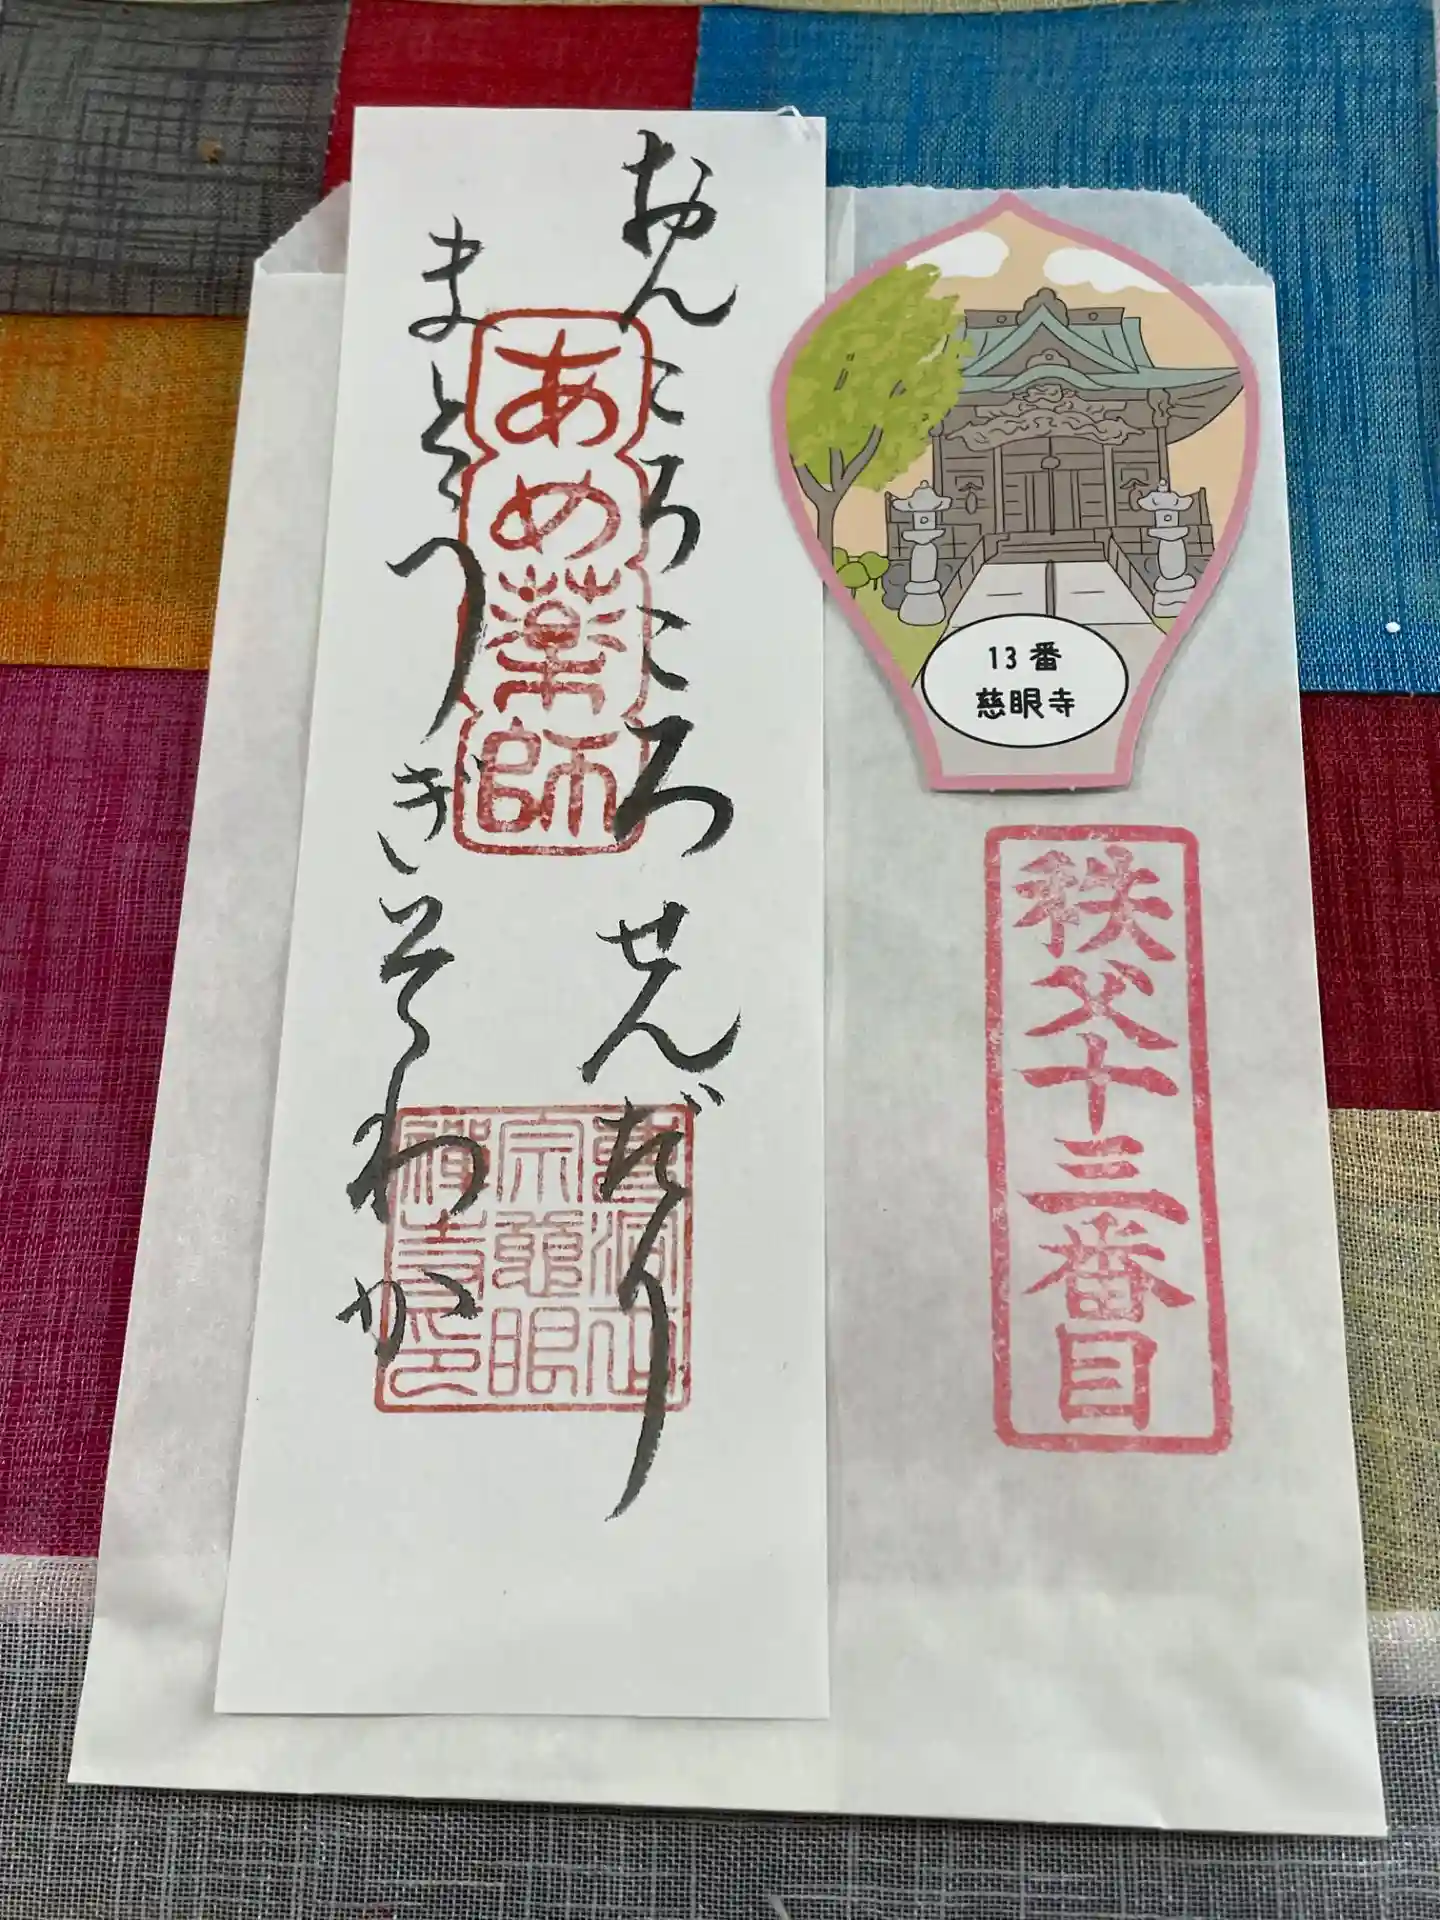 おんころころせんだり
まとうぎそわか
あめ薬師
曹洞正
宗慈眼
禅寺印
13番
慈眼寺
秩父十三番目